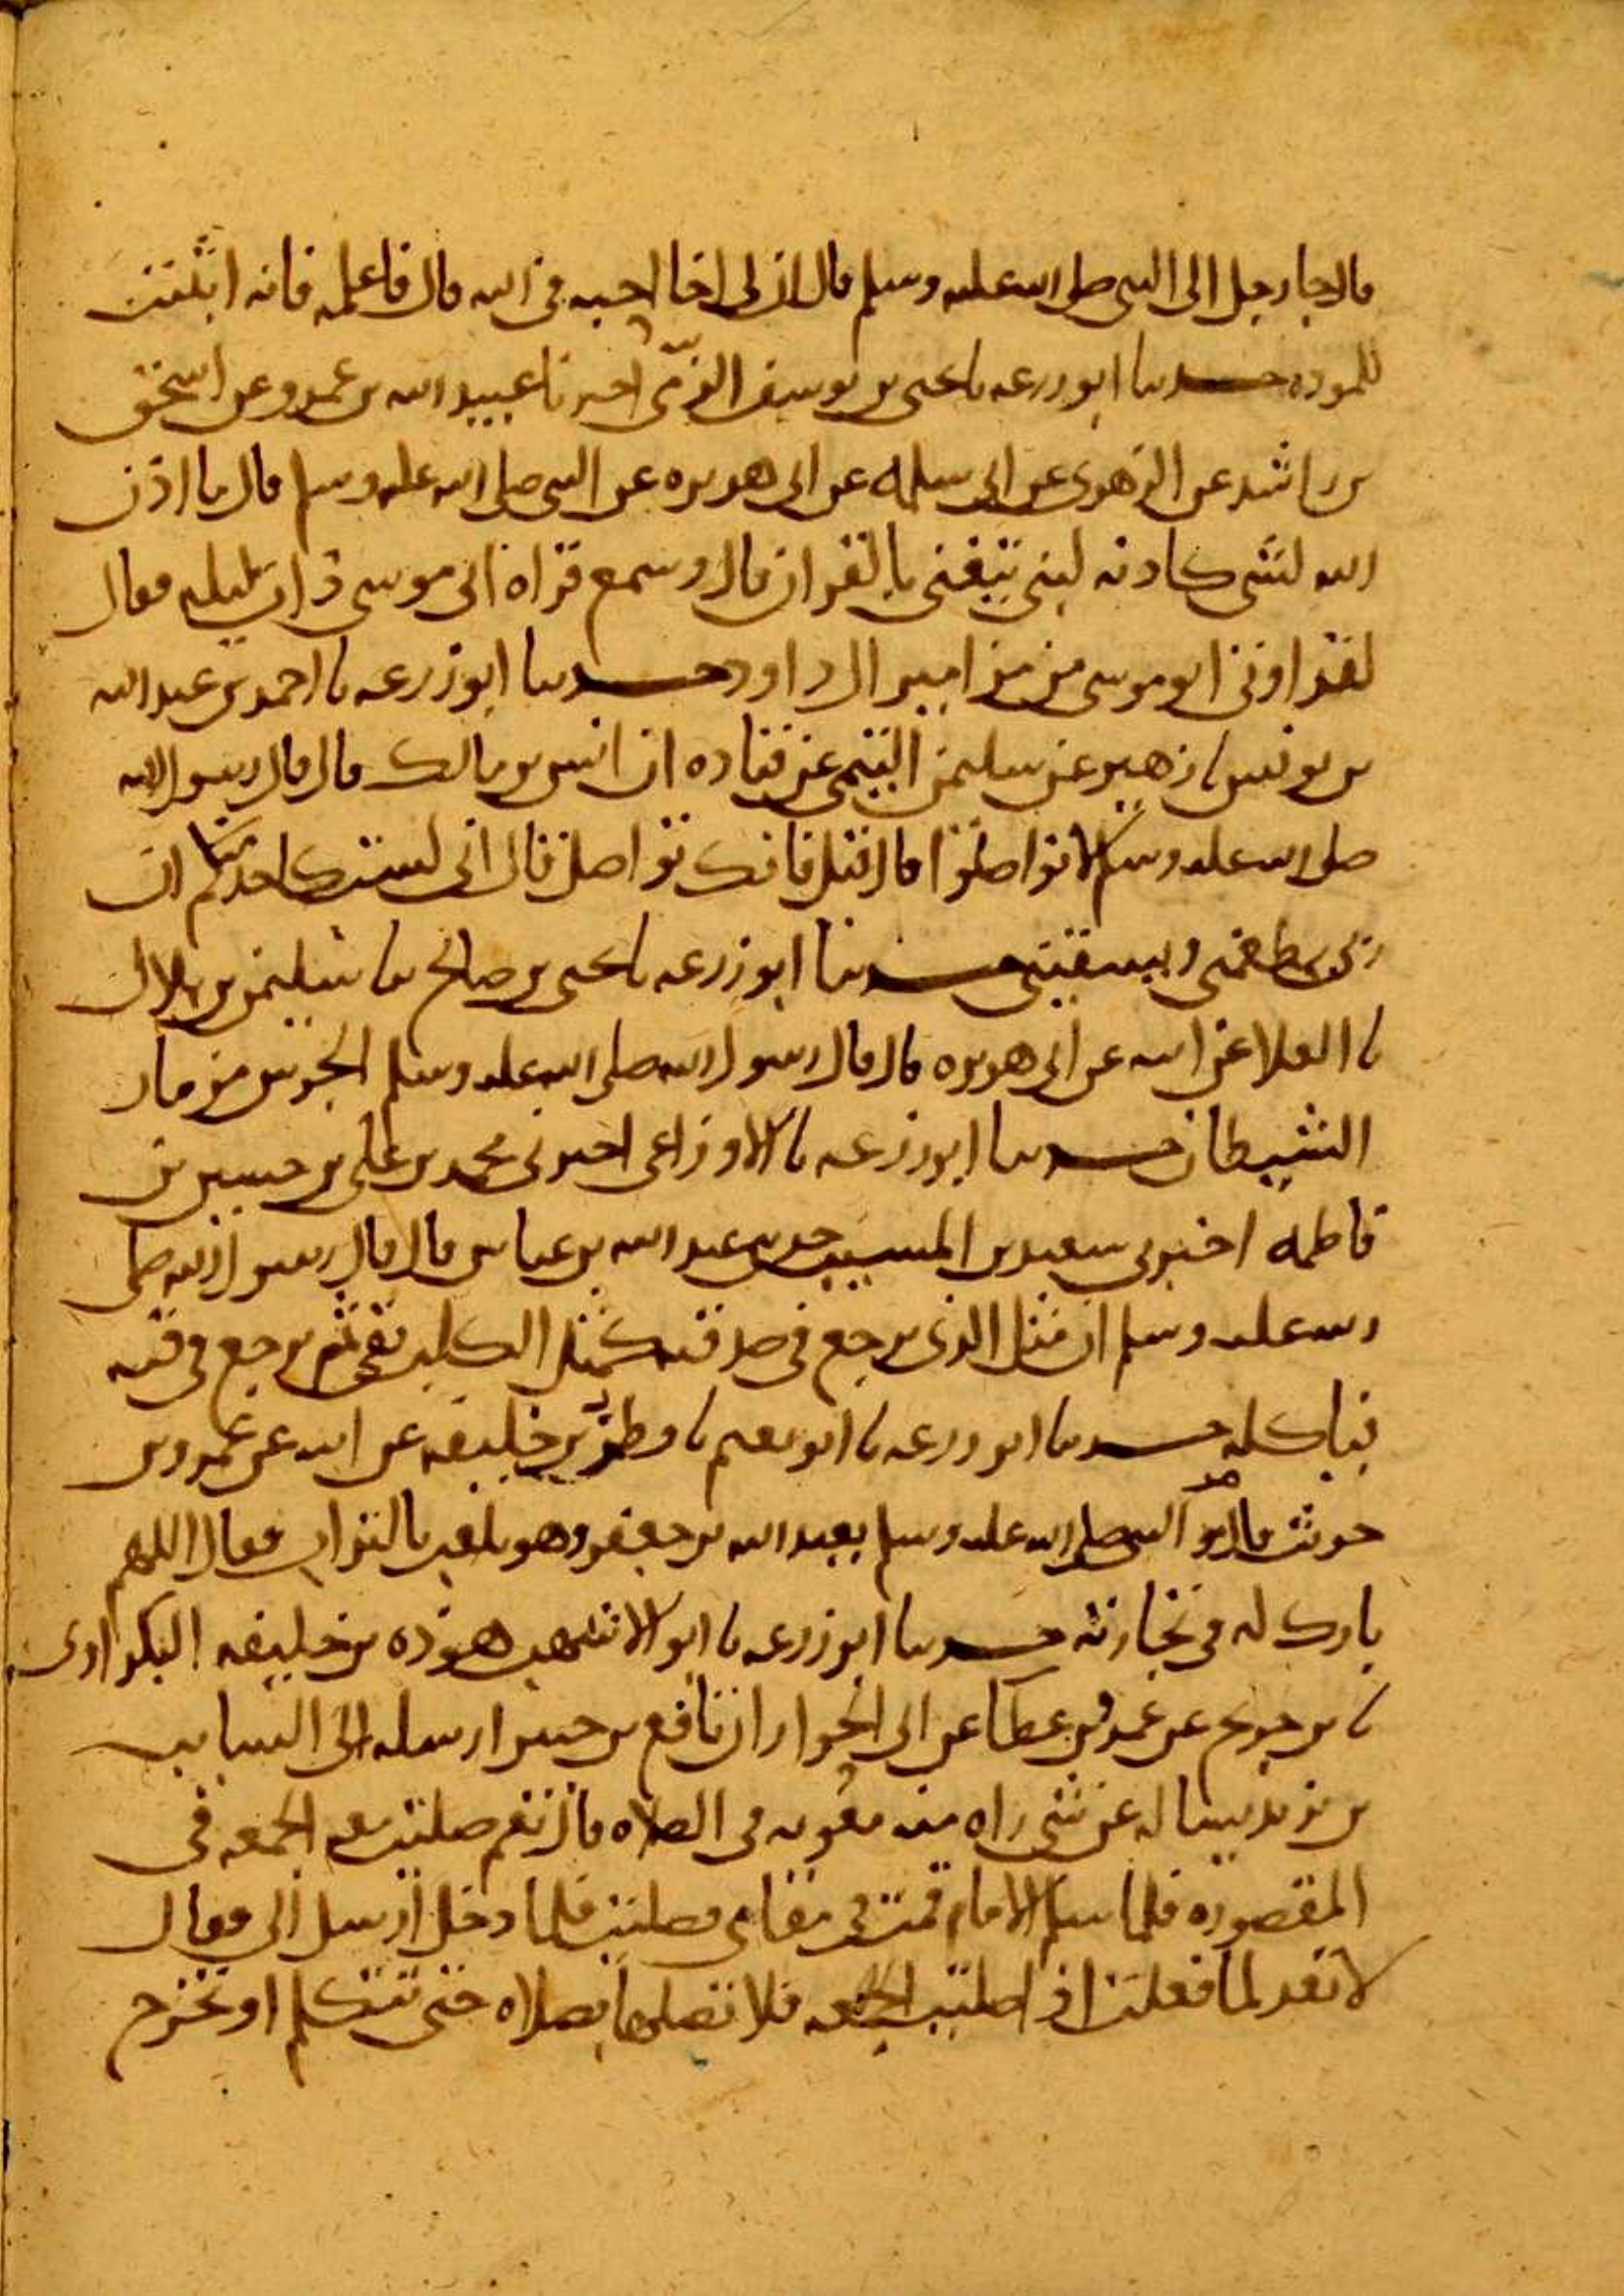 قال جا رجل الى النبي صلى الله عليه وسلم قال ان لى اخا احبه في الله قال فاعلمه فانه اثبت
للموده حدثنا ابو زرعه نا يحيى بن يوسف الزمي اخبرنا عبيد الله بن عمرو عن اسحق
بن راشد عن الزهرى عن ابى سلمه عن ابى هريره عن النبي صلى الله عليه وسلم قال ما اذن
الله لشى كاذنه لنبى يتغنى بالقران قال وسمع قراه ابى موسى ذات ليله فقال
لقد اوتى ابو موسى من مزامير ال داود حدثنا ابو زرعه نا احمد بن عبد الله
بن يونس نا زهير عن سليمن التيمى عن قتاده ان انس بن مالك قال قال رسول الله
صلى الله عليه وسلم لا تواصلوا قال قيل فانك تواصل قال انى لست كاحدكم ان
ربى يطعمنى ويسقينى حدثنا ابو زرعه نا يحيى بن صالح نا سليمن بن بلال
نا العلا عن ابيه عن ابى هريره قال قال رسول الله صلى الله عليه وسلم الجرس مزمار
الشيطان حدثنا ابو زرعه نا الاوزاعى اخبرنى محمد بن على بن حسين بن
فاطمه اخبرنى سعيد بن المسيب حدثنى عبد الله بن عباس قال قال رسول الله صلى
الله عليه وسلم ان مثل الذى يرجع في صدقته كمثل الكلب يقى ثم يرجع في قيه
فياكله حدثنا ابو زرعه نا ابو نعيم نا فطر بن خليفه عن ابيه عن عمرو بن
حريث قال مر النبي صلى الله عليه وسلم بعبد الله بن جعفر وهو يلعب بالتراب فقال اللهم
بارك له في تجارته حدثنا ابو زرعه نا ابو الاشهب هوذه بن خليفه البكراوى
نا بن جريج عن عمر بن عطا عن ابى الخوار ان نافع بن جبير ارسله الى السايب
بن يزيد يساله عن شى راه منه معويه في الصلاه قال نعم صليت معه الجمعه في
المقصوره فلما سلم الامام قمت في مقامى فصليت فلما دخل ارسل الى فقال
لا تعد لما فعلت اذا صليت الجمعه فلا تصلها بصلاه حتى تتكلم او تخرج